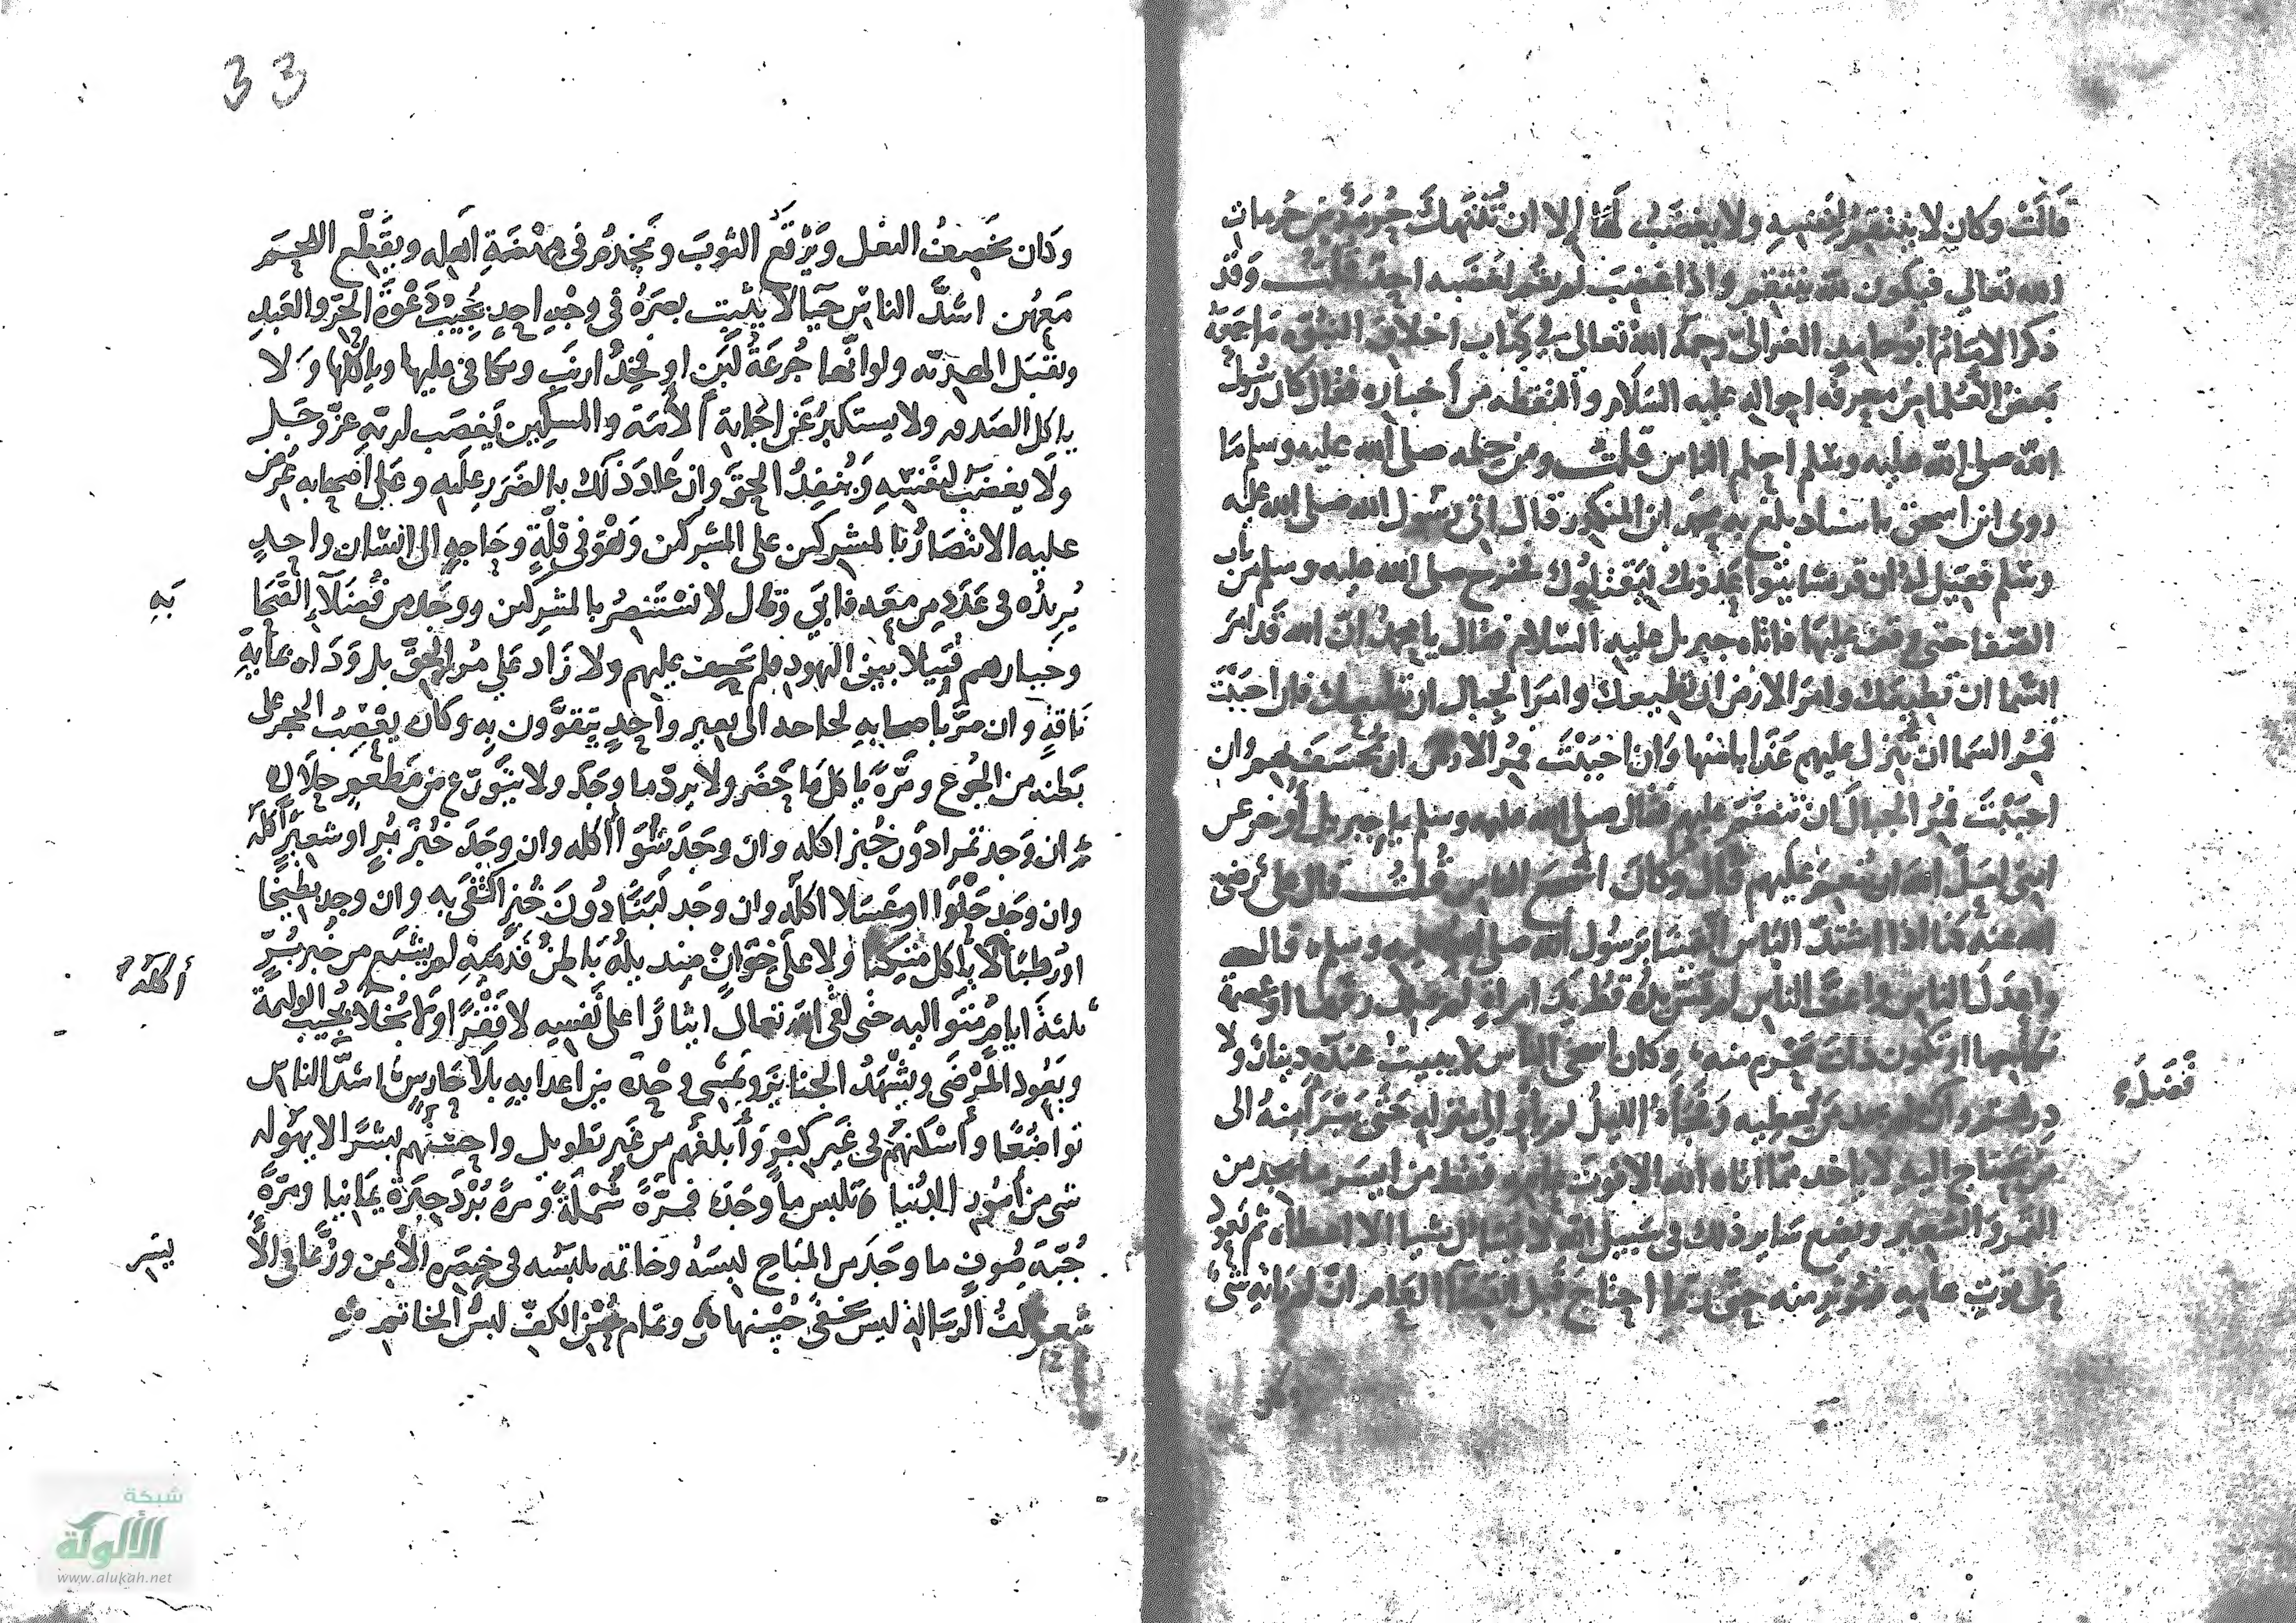 قالت وكان لا ينتقم لنفسه ولا يغضب لها إلا ان تنتهك حرمة من حرمات
الله تعالي فيكون لله ينتقم واذا غضب لم يقم لغضبه احد قلت وقد
ذكر الامام ابو حامد الغزالي رحمه الله تعالى في كتاب اخلاق النبوة ما جمعه
بعض العلما من معرفة احواله عليه السلام والتقطه من أخباره فقال كان رسول
الله صلى الله عليه وسلم احلم الناس قلت ومن حلمه صلى الله عليه وسلم ما
روى ابن اسحق باسناد بلغ به محمد ابن المنكدر قال اتى رسول الله صلى الله عليه
وسلم فقيل له ان قريشا يتواعدونك ليقتلوك فخرج صلى الله عليه وسلم من باب
الصفا حتى وقف عليها فاتاه جبريل عليه السلام فقال يا محمد ان الله قد امر
السما ان تطيعك وامر الارض ان تطيعك وامر الجبال ان تطيعك فان احببت
فمر السما ان تنزل عليهم عذابا منها وان احببت فمر الارض ان تخسف بهم وان
احببت فمر الجبال ان تنضم عليهم فقال صلى الله عليه وسلم يا جبريل أوخر عن
امتي لعل الله ان عليهم قال وكان اشجع الناس قلت قال علي رضى
الله عنه كنا اذا اشتد الباس اتقينا برسول الله صلى الله عليه وسلم قال
واعدل الناس واعف الناس لم تمس يده قط يد امراة لم يملك رقها او عصمة
نكاحها او تكون ذات محرم منه وكان اسخى الناس لا يبيت عنده دينار ولا
درهم وان فضل ولم يجد من يعطيه وفجأه الليل لم يأو الى منزله حتى يتبرأ منه الى
من يحتاج اليه لا ياخذ مما اتاه الله الا قوت عامه فقط من ايسر ما يجد من
التمر والشعير ويضع ساير ذلك في سبيل الله لا يسال شيا الا اعطاه ثم يعود
على قوت عامه فيوثر منه حتى ربما احتاج قبل انقضا العام ان لم ياته شى
فَضَلَ
33
وكان يخصف النعل ويرقع الثوب ويخدم في مهنة اهله ويقطع اللحم
معهن اشد الناس حيا لا يثبت بصره في وجه احد يجيب دعوة الحر والعبد
ويقبل الهدية ولو انها جرعة لبن او فخذ ارنب ويكافي عليها وياكلها ولا
ياكل الصدقه ولا يستكبر عن اجابة الامة والمسكين يغضب لربه عز وجل
ولا يغضب لنفسه وينفذ الحق وان عاد ذلك بالضرر عليه وعلى اصحابه عرض
عليه الانتصار بالمشركين على المشركين وهو في قلة وحاجه الى انسان واحد
يزيده في عدد من معه فابي وقال لا نستنصر بالمشركين ووجد من فضلاء اصحا
به
وخيارهم قتيلا بين اليهود فلم يحف عليهم ولا زاد على مر الحق بل وداه بماية
ناقة وان مر باصحابه لحاجه الى بعير واحد يتقوون به وكان يعصب الحجر على
بطنه من الجوع ومرة ياكل ما حضر ولا يرد ما وجد ولا يتورع من مطعم حلال
ان وجد تمرا دون خبز اكله وان وجد شوا اكله وان وجد خبز بر او شعير اكله
وان وجد حلوا او عسلا اكله وان وجد لبنا دون خبز اكتفى به وان وجد بطيخا
او رطبا أكله لا ياكل متكيا ولا على خوان منديله باطن قدميه لم يشبع من خبز بر
ثلثة ايام متواليه حتى لقي الله تعالى ايثارا على نفسه لا فقرا ولا بخلا يجيب الوليمة
ويعود المرضى ويشهد الجنايز ويمشي وحده بين اعدايه بلا حارس اشد الناس
تواضعا وأسكنهم في غير كبر وأبلغهم من غير تطويل واحسنهم بشرا لا يهوله
شى من أمور الدنيا يلبس ما وجد فمرة شملة ومرة برد حبرة يمانيا ومرة
جبة صوف ما وجد من المباح لبسه وخاتمه يلبسه في خنصره الأيمن وربما في الأ
يسر
شعر كف الرسالة ليس يخفى حسنها وتمام حسن الكف لبس الخاتم
شبكة
الألوكة
www.alukah.net